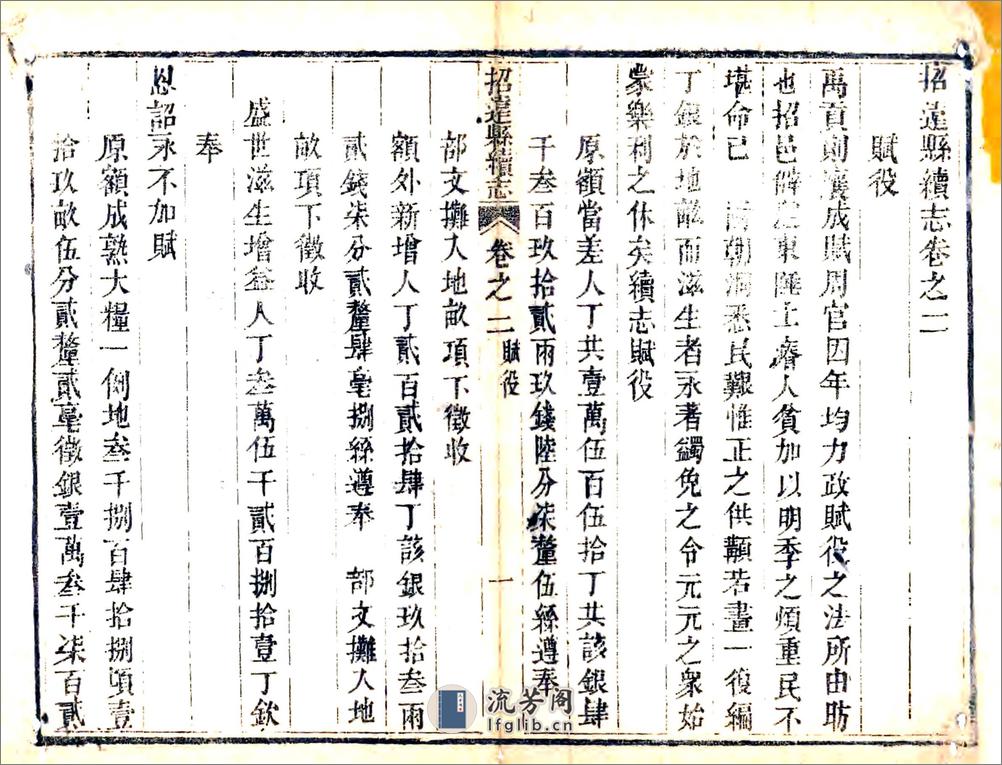 招遠縣續志卷之二
賦役
禹貢則壤成賦周官因年均力政賦役之法所由昉
也招邑僻處東陲土瘠人貧加以明季之煩重民不
堪命已 清朝洞悉民艱惟正之供顜若畫一復編
丁銀於地畝而滋生者永著蠲免之令元元之衆始
衆樂利之休矣續志賦役
原額當差人丁共壹萬伍百伍拾丁共該銀肆
千叁百玖拾貳兩玖錢陸分柒釐伍絲遵奉
招遠縣續志 卷之二 賦役 一
部文攤入地畝項下徵收
額外新增人丁貳百貳拾肆丁該銀玖拾叁兩
貳錢柒分貳釐肆毫捌絲遵奉 部文攤入地
畝項下徵收
盛世滋生增益人丁叁萬伍千貳百捌拾壹丁欽
奉
恩詔永不加賦
原額成熟大糧一例地叁千捌百肆拾捌頃壹
拾玖畝伍分貳釐貳毫徵銀壹萬叁千柒百貳
流芳阁
lfglib.cn